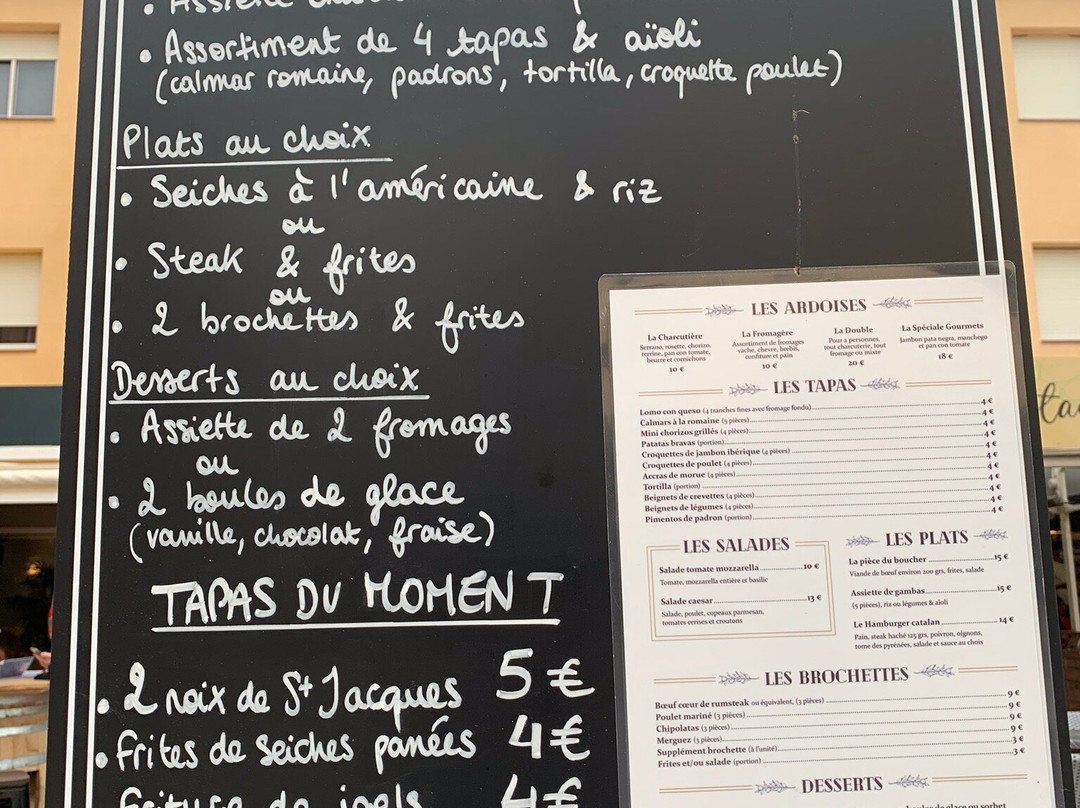 • Assiette
• Assortiment de 4 tapas & aïoli
(calmar romaine, padrons, tortilla, croquette poulet)
Plats au choix
• Seiches à l'américaine & riz
ou
• Steak & frites
ou
• 2 brochettes & frites
Desserts au choix
• Assiette de 2 fromages
ou
• 2 boules de glace
(vanille, chocolat, fraise)
TAPAS DU MOMENT
• 2 noix de St Jacques 5€
• Frites de seiches panées 4€
Friture de joels 4€
LES ARDOISES
La Charcutière
Serrano, rosette, chorizo,
terrine, pan con tomate,
beurre et cornichons
10 €
La Fromagère
Assortiment de fromages
vache, chevre, brebis,
confiture et pain
10 €
La Double
Pour 2 personnes,
tout charcuterie, tout
fromage ou mixte
20 €
La Spéciale Gourmets
Jambon pata negra, manchego
et pan con tomate
18 €
LES TAPAS
Lomo con queso (4 tranches fines avec fromage fondu) 4 €
Calmars à la romaine (5 pièces) 4 €
Mini chorizos grillés (4 pièces) 4 €
Patatas bravas (portion) 4 €
Croquettes de jambon ibérique (4 pièces) 4 €
Croquettes de poulet (4 pièces) 4 €
Accras de morue (4 pièces) 4 €
Tortilla (portion) 4 €
Beignets de crevettes (4 pièces) 4 €
Beignets de légumes (4 pièces) 4 €
Pimentos de padron (portion) 4 €
LES SALADES
Salade tomate mozzarella 10 €
Tomate, mozzarella entière et basilic
Salade caesar 13 €
Salade, poulet, copeaux parmesan,
tomates cerises et croutons
LES PLATS
La pièce du boucher 15 €
Viande de bœuf environ 200 grs, frites, salade
Assiette de gambas 15 €
(5 pièces), riz ou légumes & aïoli
Le Hamburger catalan 14 €
Pain, steak haché 125 grs, poivron, oignons,
tome des pyrénées, salade et sauce au choix
LES BROCHETTES
Bœuf cœur de rumsteak ou équivalent, (3 pièces) 9 €
Poulet mariné (3 pièces) 9 €
Chipolatas (3 pièces) 9 €
Merguez (3 pièces) 9 €
Supplément brochette (à l'unité) 3 €
Frites et/ou salade (portion) 3 €
DESSERTS
boules de glace ou sorbet